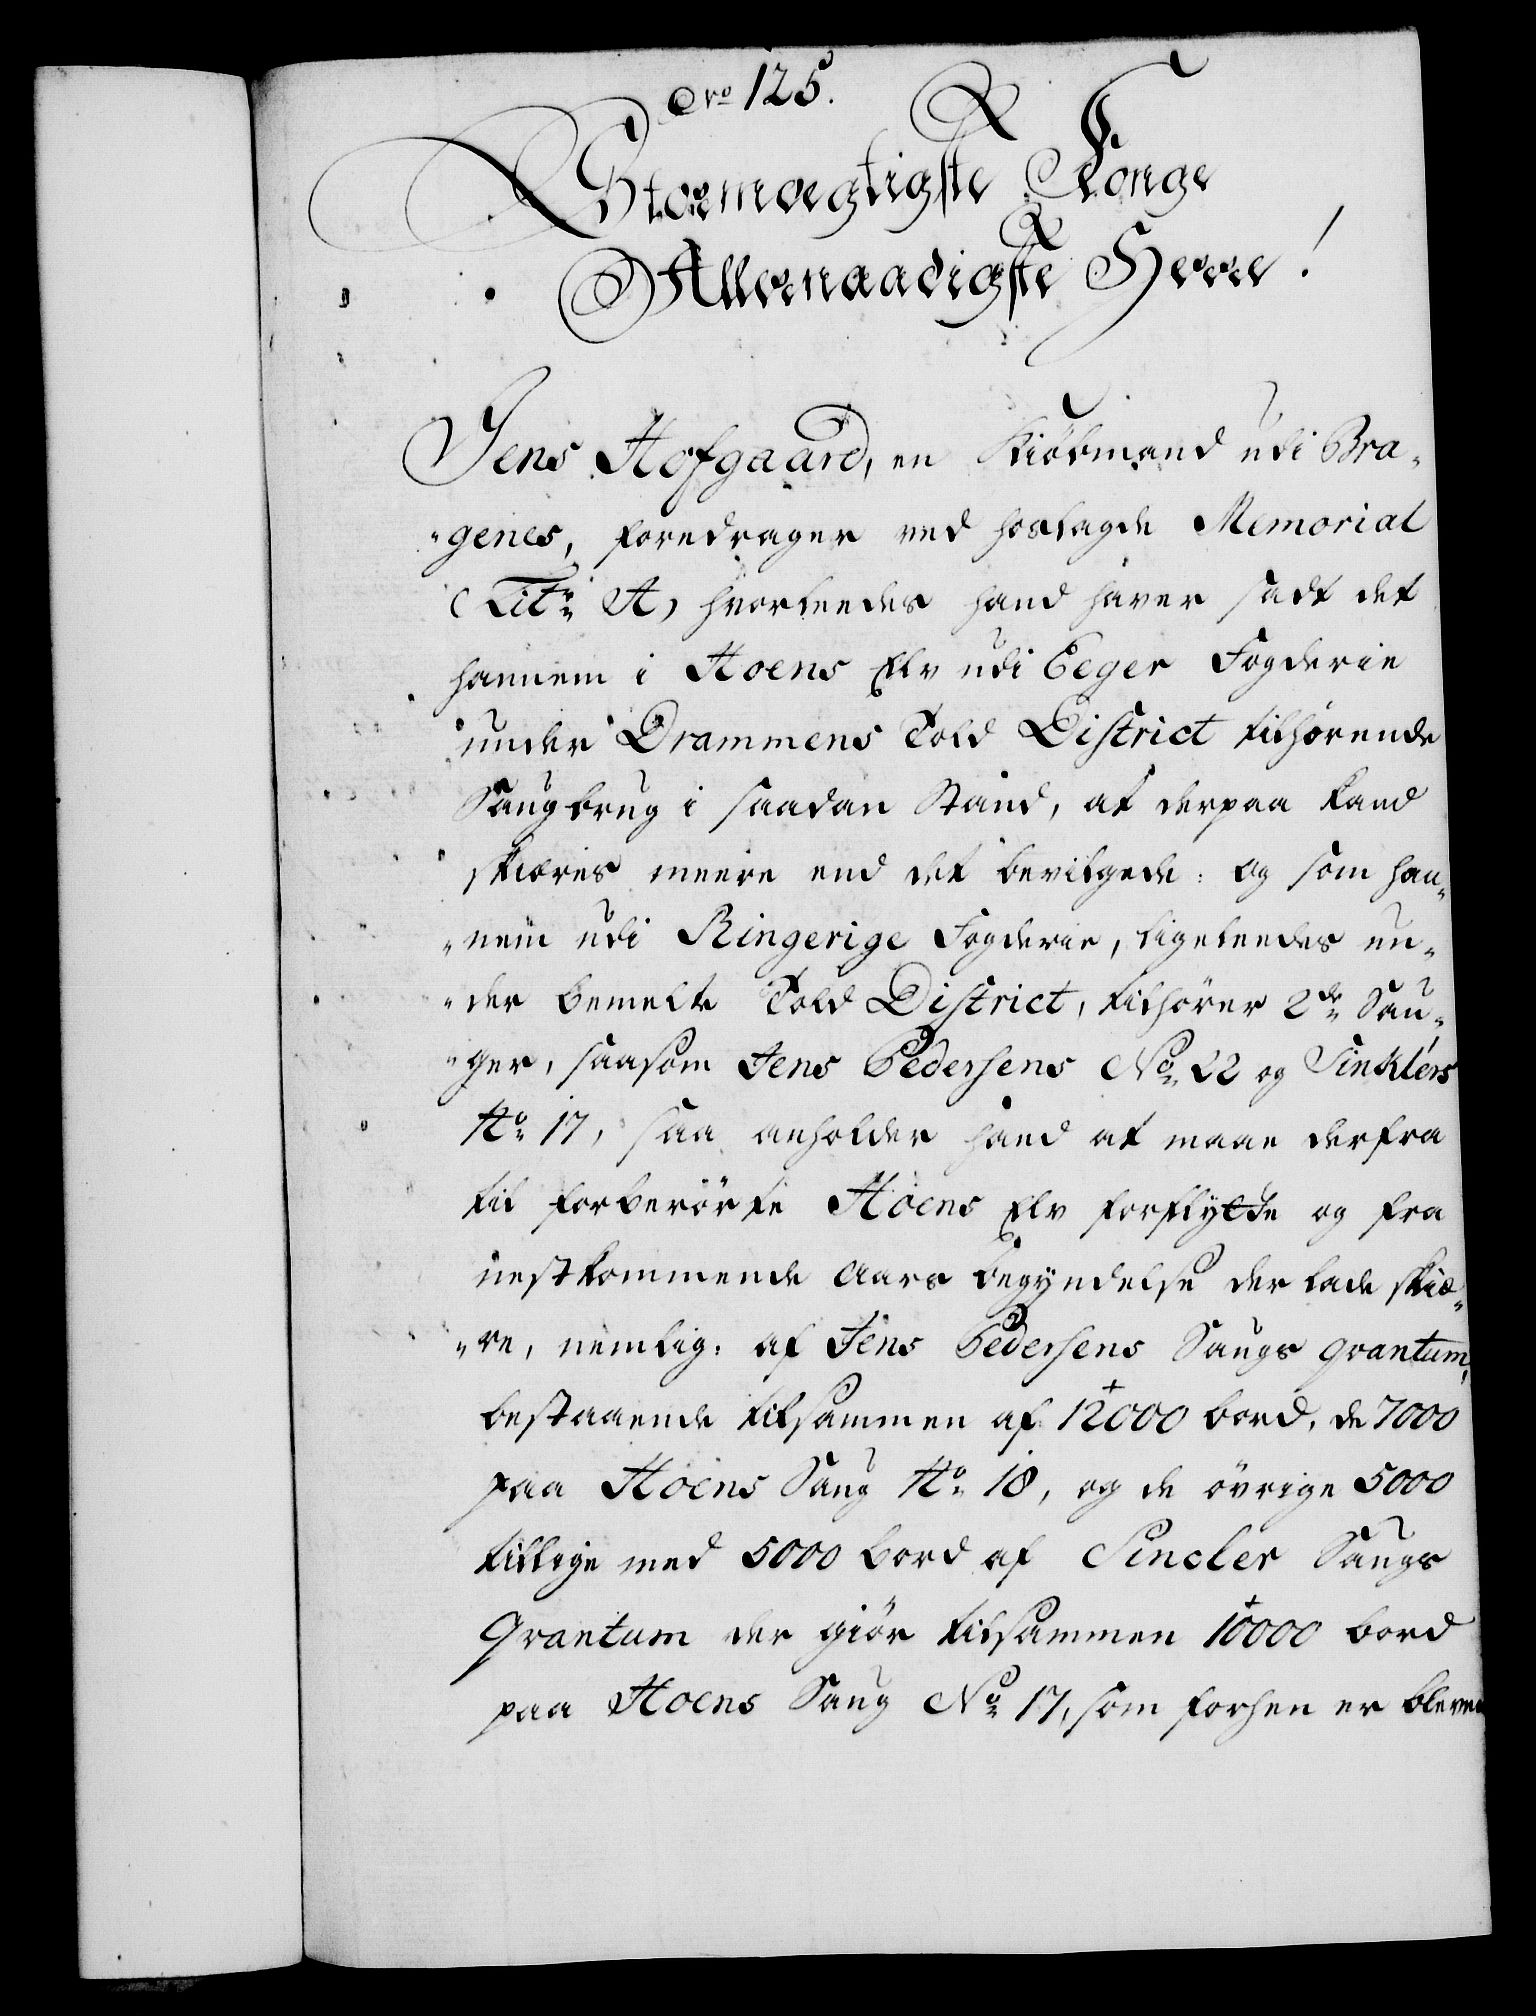 Nro 125.
Stormægtigste Konge
Allernaadigste Herre!
Jens Hofgaard, en Kiöbmand udi Bra-
-genes, foredrager ved hoslagde Memorial
(Litr. A) hvorleedes hand haver sadt det
hannem i Hoens Elv udi Eeger Fogderie
under Drammens Told District tilhörende
Saugbrug i saadan Stand, at derpaa kand
skiæres meere end det bevilgede: og som han-
-nem udi Ringerige Fogderie, ligeleedes un-
-der bemelte Told District, tilhörer 2de Sau-
-ger, saasom Jens Pedersens No 22 og Sinklers
No 17, saa anholder hand at maae derfra
til forberörte Hoens Elv forflytte og fra
nestkommende Aars Begyndelse der lade skiæ-
-re, nemlig: af Jens Pedersens Saugs Qvantum,
bestaaende tilsammen af 12000 bord, de 7000
paa Hoens Saug No 18, og de övrige 5000
tillige med 5000 bord af Sincler Saugs
Qvantum der giör tilsammen 10000 bord
paa Hoens Saug No 17, som forhen er bleven